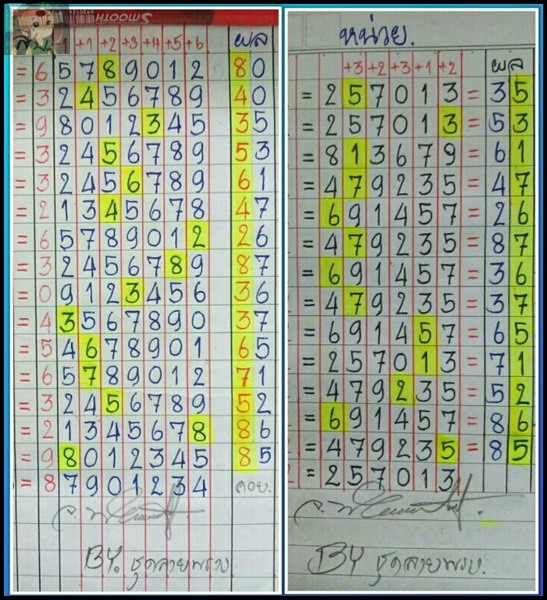 SMOOTH
+1 +2 +3 +4 +5 +6 ผล
= 6 5 7 8 9 0 1 2 80
= 3 2 4 5 6 7 8 9 40
= 9 8 0 1 2 3 4 5 35
= 3 2 4 5 6 7 8 9 53
= 3 2 4 5 6 7 8 9 61
= 2 1 3 4 5 6 7 8 47
= 6 5 7 8 9 0 1 2 26
= 3 2 4 5 6 7 8 9 87
= 0 9 1 2 3 4 5 6 36
= 4 3 5 6 7 8 9 0 37
= 5 4 6 7 8 9 0 1 65
= 6 5 7 8 9 0 1 2 71
= 3 2 4 5 6 7 8 9 52
= 2 1 3 4 5 6 7 8 86
= 9 8 0 1 2 3 4 5 85
= 8 7 9 0 1 2 3 4 คอย.
BY. ชุดลายพราง
หน่วย.
+3 +2 +3 +1 +2 ผล
= 2 5 7 0 1 3 = 35
= 2 5 7 0 1 3 = 53
= 8 1 3 6 7 9 = 61
= 4 7 9 2 3 5 = 47
= 6 9 1 4 5 7 = 26
= 4 7 9 2 3 5 = 87
= 6 9 1 4 5 7 = 36
= 4 7 9 2 3 5 = 37
= 6 9 1 4 5 7 = 65
= 2 5 7 0 1 3 = 71
= 4 7 9 2 3 5 = 52
= 6 9 1 4 5 7 = 86
= 4 7 9 2 3 5 = 85
= 2 5 7 0 1 3
BY ชุดลายพราง.